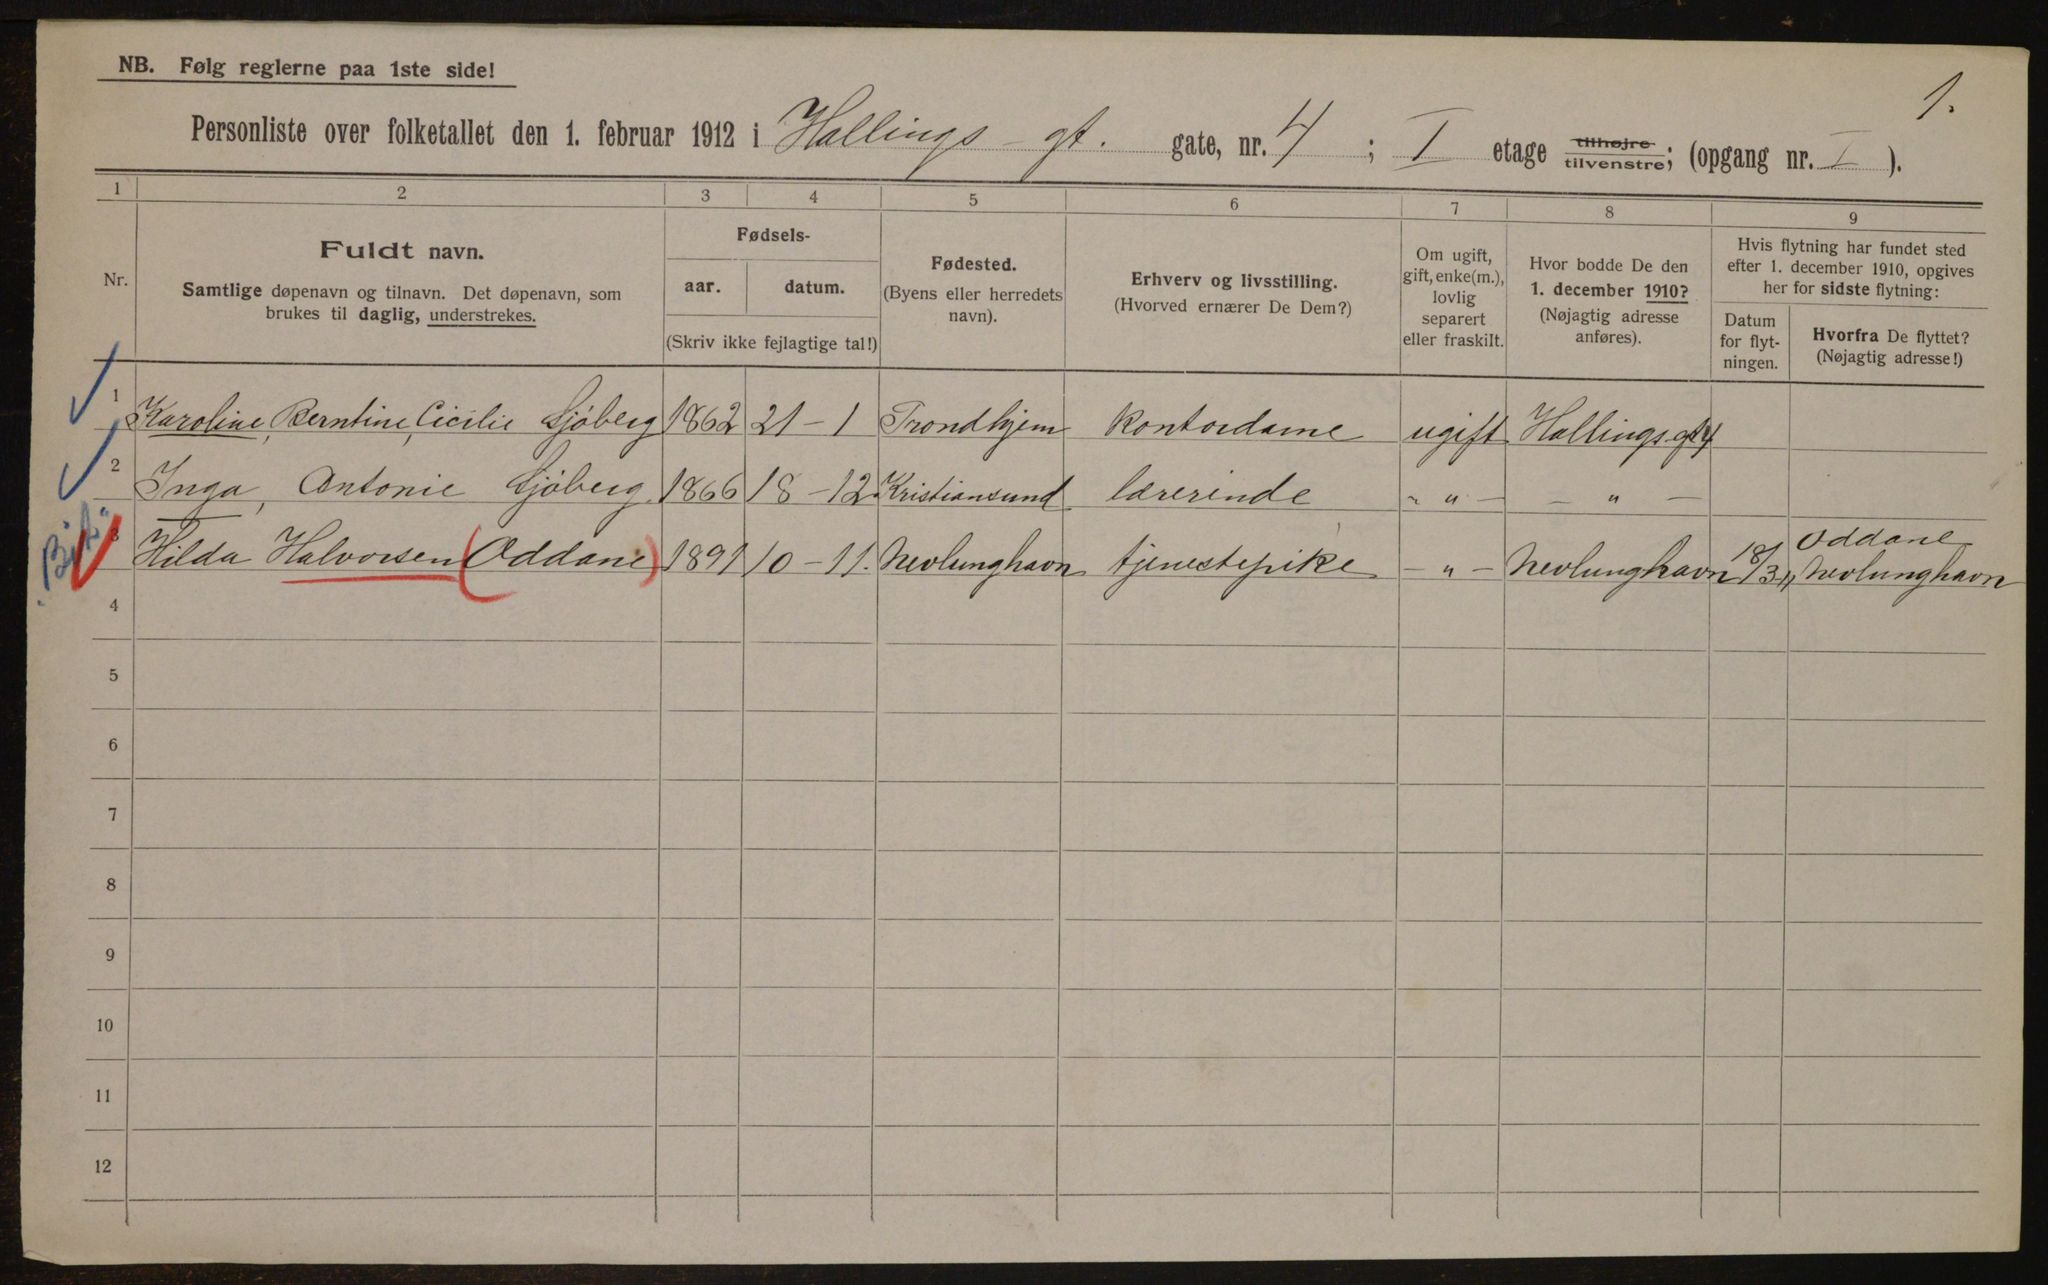 NB. Følg reglerne paa 1ste side!
1.
Personliste over folketallet den 1. februar 1912 i Hallings-gt. gate, nr. 4 ; I etage tilhøjre tilvenstre; (opgang nr. I ).
1 2 3 4 5 6 7 8 9
Nr.
Fuldt navn.
Samtlige døpenavn og tilnavn. Det døpenavn, som
brukes til daglig, understrekes.
Fødsels-
aar. datum.
(Skriv ikke fejlagtige tal!)
Fødested.
(Byens eller herredets
navn).
Erhverv og livsstilling.
(Hvorved ernærer De Dem?)
Om ugift,
gift, enke(m.),
lovlig
separert
eller fraskilt.
Hvor bodde De den
1. december 1910?
(Nøjagtig adresse
anføres).
Hvis flytning har fundet sted
efter 1. december 1910, opgives
her for sidste flytning:
Datum
for flyt-
ningen.
Hvorfra De flyttet?
(Nøjagtig adresse!)
1 Karoline, Berntine, Cicilie Sjöberg 1862 21-1 Trondhjem Kontordame ugift Hallings-gt 4
2 Inga, Antonie Sjöberg. 1866 18-12 Kristiansund lærerinde - " - - " -
3 Hilda Halvorsen (Oddane) 1891 10-11. Nevlunghavn tjenestepike - " - Nevlunghavn 18/3 11 Oddane Nevlunghavn
4
5
6
7
8
9
10
11
12